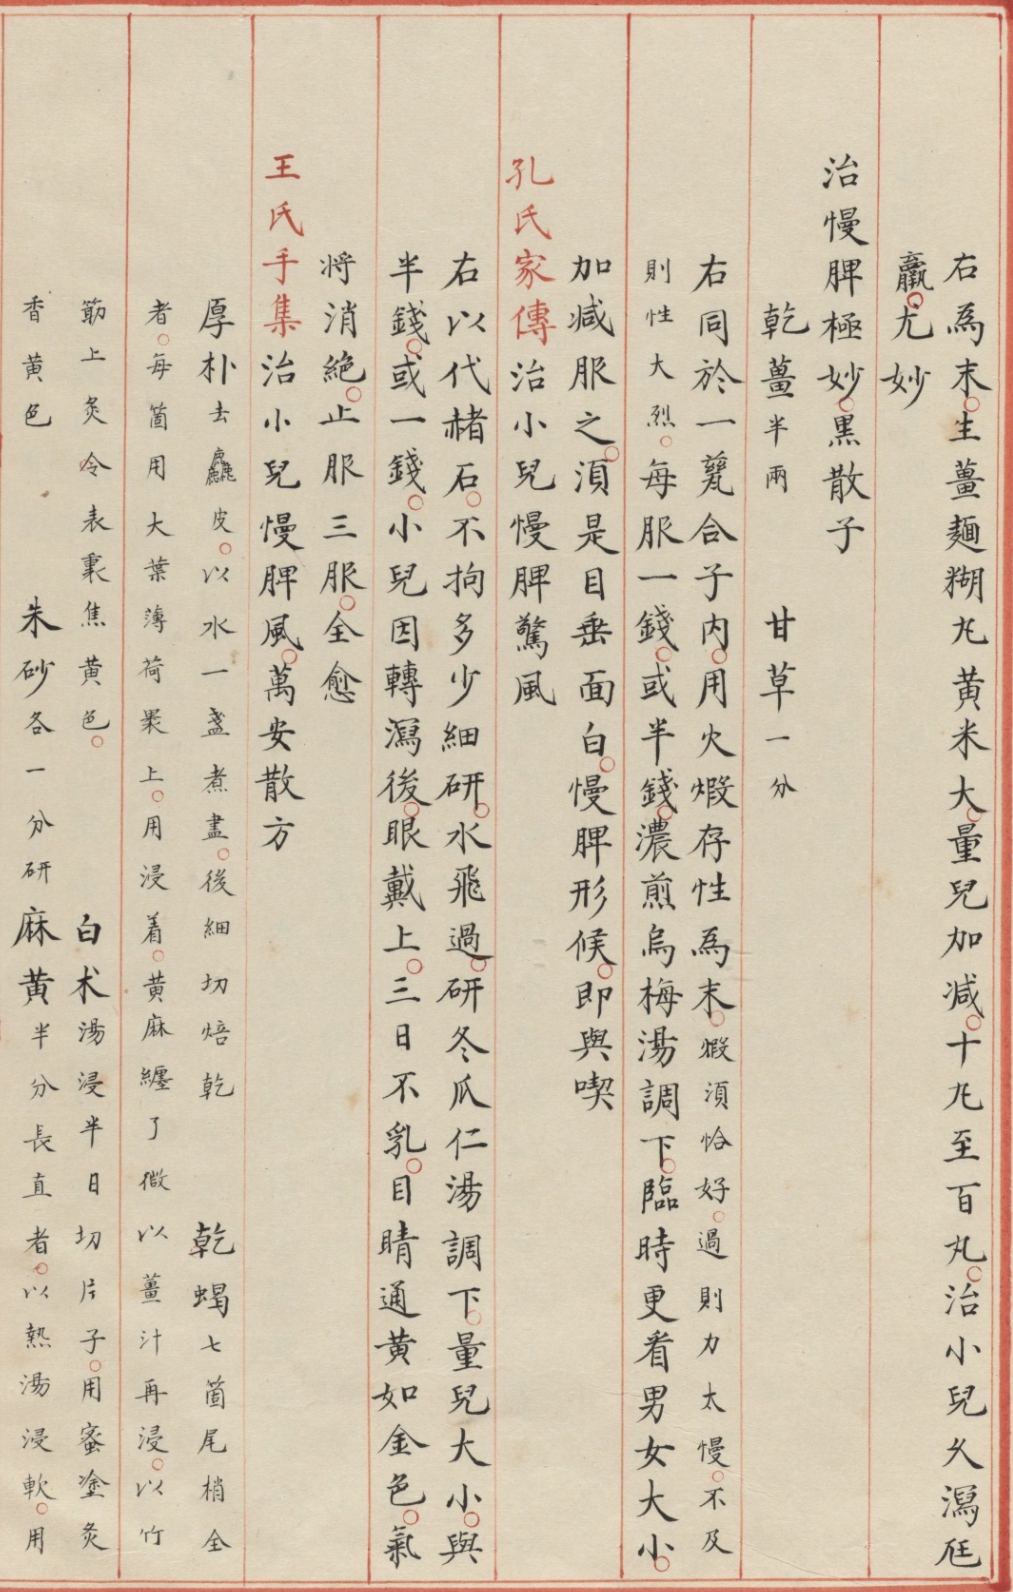 右爲末○生薑麺糊丸黄米大○量兒加減○十丸至百丸○治小兒久瀉尫
羸○尤妙
治慢脾極妙○黒散子
乾薑半兩　甘草一分
右同於一甕合子内○用火煅存性爲末○煅湏恰好○過則力太慢○不及
則性大烈○每服一錢○或半錢○濃煎烏梅湯調下○臨時更看男女大小○
加減服之○湏是目垂面白○慢脾形候○即與喫
孔氏家傳治小兒慢脾驚風
右以代赭石○不拘多少細研○水飛過○研冬瓜仁湯調下○量兒大小○與
半錢○或一錢○小兒因轉瀉後○眼戴上○三日不乳○目睛通黄如金色○氣
将消絶○止服三服○全愈
王氏手集治小兒慢脾風○萬安散方
厚朴去麤皮○以水一盞煮盡○後細切焙乾　乾蝎七箇尾梢全
者○每箇用大葉薄荷裹上○用浸着○黄麻纏了微以薑汁再浸○以竹
筯上炙令表裏焦黄色○　白术湯浸半日切片子○用蜜塗炙
香黄色　朱砂各一分研麻黄半分長直者○以熱湯浸軟○用